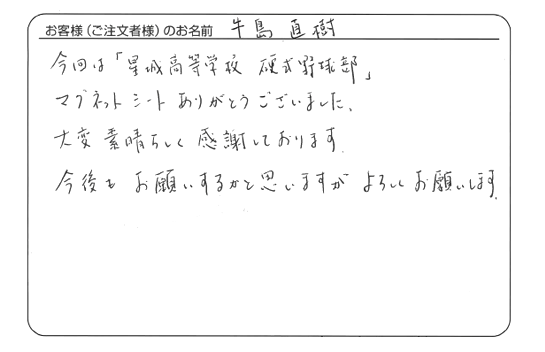 お客様（ご注文者様）のお名前 牛島 直樹
今回は「星城高等学校 硬式野球部」
マグネットシート ありがとうございました、
大変 素晴らしく 感謝しております
今後も お願いするかと思いますが よろしくお願いします